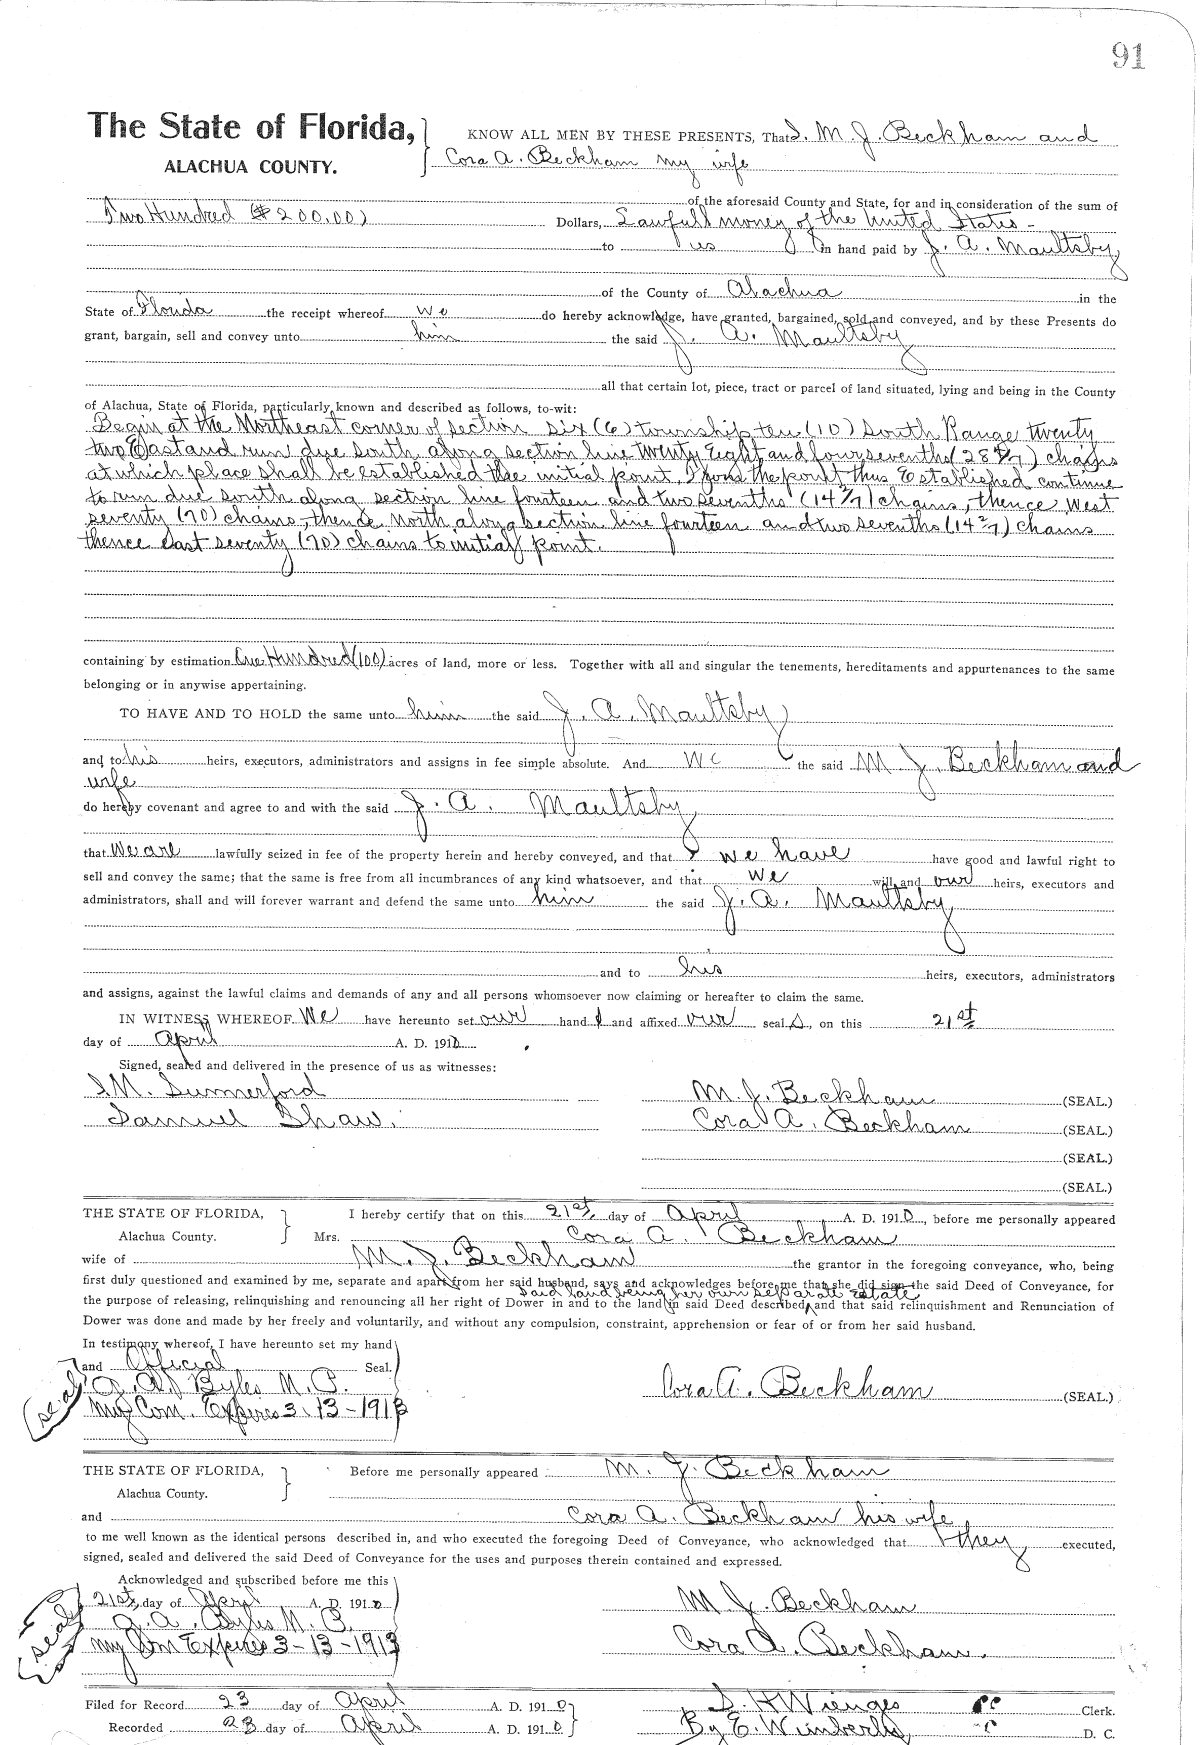 91
The State of Florida,
ALACHUA COUNTY.
KNOW ALL MEN BY THESE PRESENTS, That I. M. J. Beckham and
Cora A. Beckham my wife
of the aforesaid County and State, for and in consideration of the sum of
Two Hundred ($200.00) Dollars, Lawfull money of the United States -
to us in hand paid by J. A. Maultsby
of the County of Alachua in the
State of Florida the receipt whereof we do hereby acknowledge, have granted, bargained, sold and conveyed, and by these Presents do
grant, bargain, sell and convey unto him the said J. A. Maultsby
all that certain lot, piece, tract or parcel of land situated, lying and being in the County
of Alachua, State of Florida, particularly known and described as follows, to-wit:
Begin at the Northeast corner of section six (6) township ten (10) South Range twenty
two East and run due south along section line twenty Eight and four sevenths (28 4/7) chains
at which place shall be established the initial point, From the point thus Established continue
to run due south along section line fourteen and two sevenths (14 2/7) chains, thence West
seventy (70) chains, thence North along section line fourteen and two sevenths (14 2/7) chains
thence east seventy (70) chains to initial point.
containing by estimation One Hundred (100) acres of land, more or less. Together with all and singular the tenements, hereditaments and appurtenances to the same
belonging or in anywise appertaining.
TO HAVE AND TO HOLD the same unto him the said J. A. Maultsby
and to his heirs, executors, administrators and assigns in fee simple absolute. And we the said M J. Beckham and
wife
do hereby covenant and agree to and with the said J. A. Maultsby
that We are lawfully seized in fee of the property herein and hereby conveyed, and that we have have good and lawful right to
sell and convey the same; that the same is free from all incumbrances of any kind whatsoever, and that we will and our heirs, executors and
administrators, shall and will forever warrant and defend the same unto him the said J. A. Maultsby
and to his heirs, executors, administrators
and assigns, against the lawful claims and demands of any and all persons whomsoever now claiming or hereafter to claim the same.
IN WITNESS WHEREOF We have hereunto set our hand s and affixed our seal s, on this 21st
day of April A. D. 1910
Signed, sealed and delivered in the presence of us as witnesses:
I. M. Sumerford M. J. Beckham (SEAL.)
Samuel Shaw. Cora A. Beckham (SEAL.)
(SEAL.)
(SEAL.)
THE STATE OF FLORIDA,
Alachua County.
I hereby certify that on this 21st day of April A. D. 1910, before me personally appeared
Mrs. Cora A. Beckham
wife of M. J. Beckham the grantor in the foregoing conveyance, who, being
first duly questioned and examined by me, separate and apart from her said husband, says and acknowledges before me that she did sign the said Deed of Conveyance, for
said land being her own separate Estate
the purpose of releasing, relinquishing and renouncing all her right of Dower in and to the land in said Deed described, and that said relinquishment and Renunciation of
Dower was done and made by her freely and voluntarily, and without any compulsion, constraint, apprehension or fear of or from her said husband.
In testimony whereof, I have hereunto set my hand
and Official Seal.
(seal) Byles N. P. Cora A. Beckham (SEAL.)
My Com. Expires 3-13-1913
THE STATE OF FLORIDA,
Alachua County.
Before me personally appeared M. J. Beckham
and Cora A. Beckham his wife
to me well known as the identical persons described in, and who executed the foregoing Deed of Conveyance, who acknowledged that they executed,
signed, sealed and delivered the said Deed of Conveyance for the uses and purposes therein contained and expressed.
Acknowledged and subscribed before me this
21st day of April A. D. 1910 M J. Beckham
(seal) Byles N. P.
My Com Expires 3-13-1913 Cora A. Beckham.
Filed for Record 23 day of April A. D. 1910 S. H Wienges Clerk.
Recorded 23 day of April A. D. 1910. By E. Wimberly D. C.